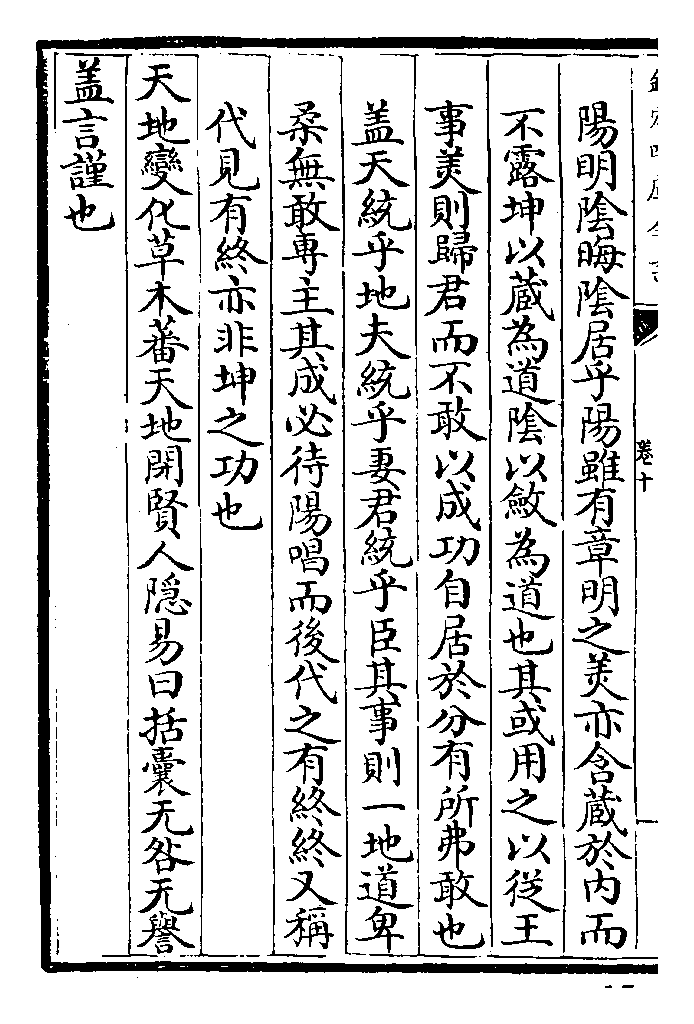 欽定四庫全書
卷十
陽明陰晦陰居乎陽雖有章明之美亦含藏於内而
不露坤以蔵為道陰以斂為道也其或用之以從王
事美則歸君而不敢以成功自居於分有所弗敢也
盖天統乎地夫統乎妻君統乎臣其事則一地道卑
柔無敢専主其成必待陽唱而後代之有終終又稱
代見有終亦非坤之功也
天地變化草木蕃天地閉賢人隠易曰括囊无咎无譽
盖言謹也